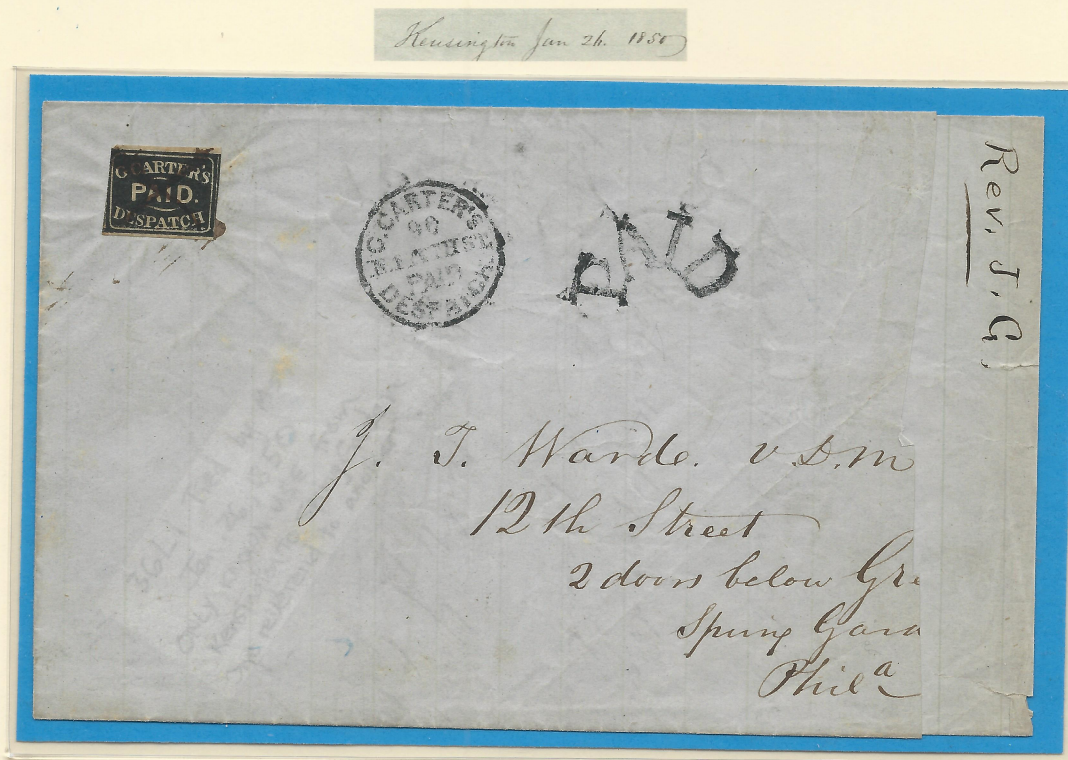 Kensington Jan 26. 1850
G CARTER'S
PAID.
DESPATCH
G. CARTER'S
PAID
DESPATCH
PAID
Rev. J. G.
J. T. Warde. V. D. M
12th Street
2 doors below Gre
Spring Gard
Phila